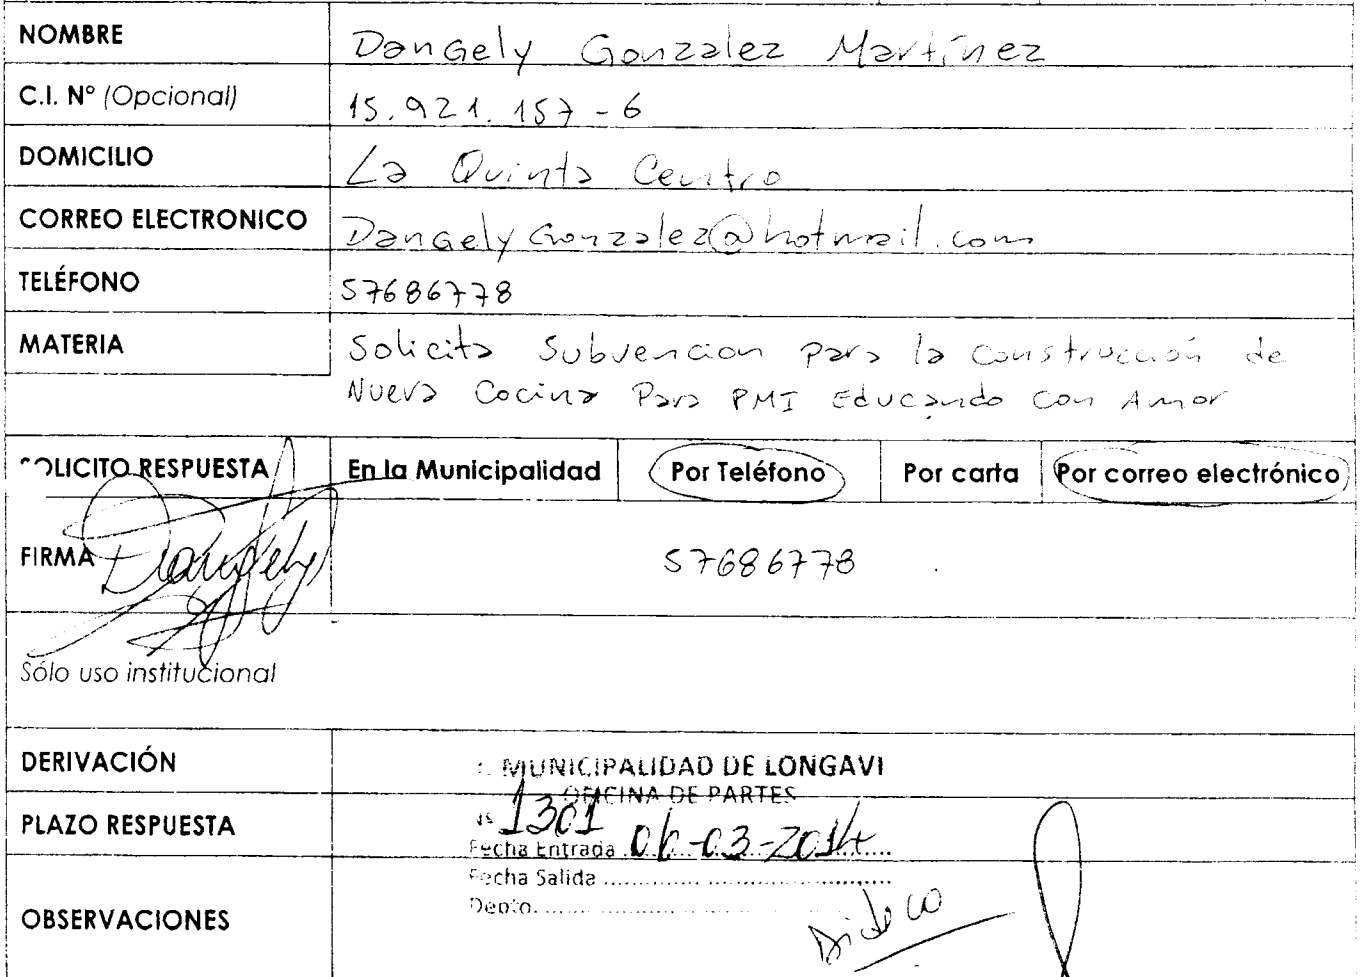 NOMBRE Dangely Gonzalez Martínez
C.I. N° (Opcional) 15.921.157-6
DOMICILIO La Quinta Centro
CORREO ELECTRONICO DangelyGonzalez@hotmail.com
TELÉFONO 57686778
MATERIA Solicita Subvencion para la Construcción de
Nueva Cocina Para PMI Educando Con Amor
SOLICITO RESPUESTA En la Municipalidad Por Teléfono Por carta Por correo electrónico
FIRMA Dangely 57686778
Sólo uso institucional
DERIVACIÓN
MUNICIPALIDAD DE LONGAVI
OFICINA DE PARTES
PLAZO RESPUESTA
1301
Fecha Entrada 06-03-2014
Fecha Salida
Depto.
OBSERVACIONES
Dideco